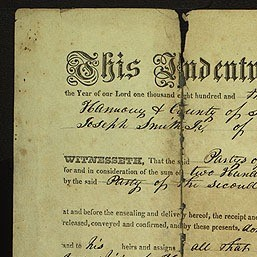 This Indentu
the Year of our Lord one thousand eight hundred and
Harmony & County of S
Joseph Smith Jr, of
WITNESSETH, That the said Party of
for and in consideration of the sum of two Hun
by the said Party of the second
at and before the ensealing and delivery hereof, the receipt and
released, conveyed and confirmed, and by these presents, do
and to his heirs and assigns all that